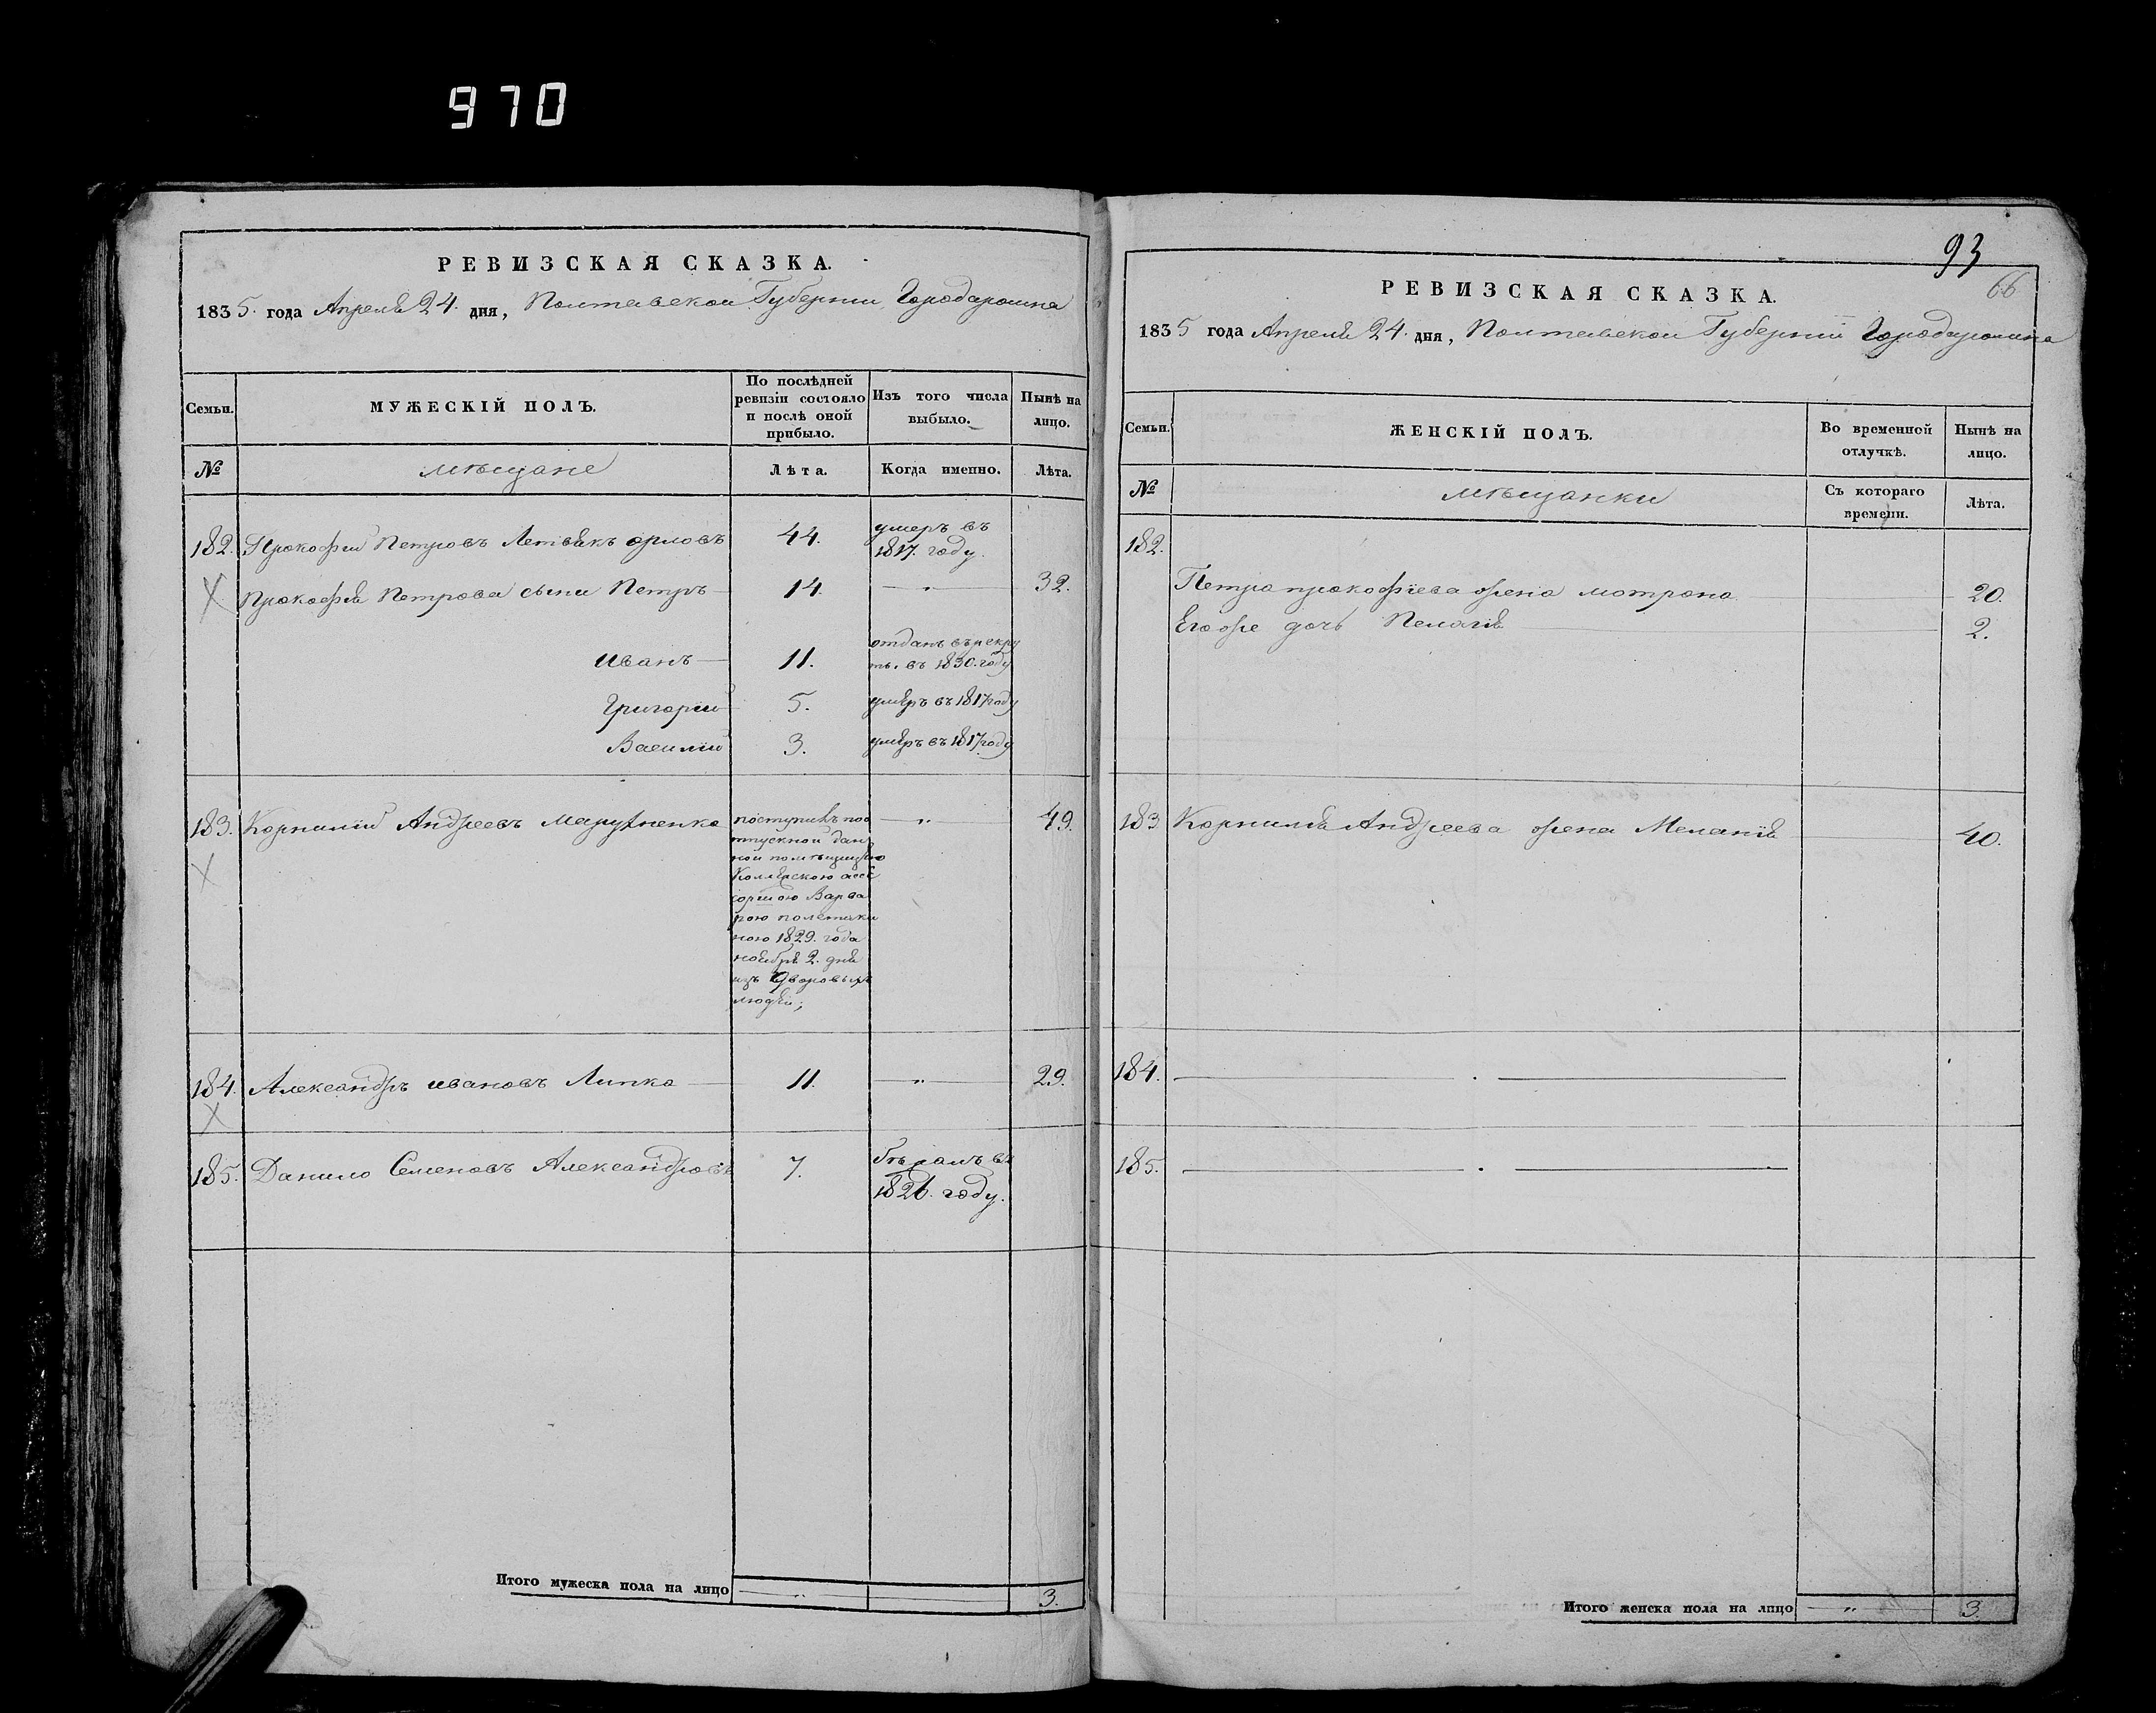 970
РЕВИЗСКАЯ СКАЗКА.
1835. года Апреля 24. дня, Полтавской Губернии, Города Ромна
Семьи.
МУЖЕСКІЙ ПОЛЪ.
По послѣдней
ревизіи состояло
и послѣ оной
прибыло.
Изъ того числа
выбыло.
Нынѣ на
лицо.
№
мѣщане
Лѣта.
Когда именно.
Лѣта.
182. Прокофий Петровъ орловъ 44. умеръ въ
1817. году.
Прокофия Петрова сыны Петръ 14. — " — 32.
отданъ въ рекру
Иванъ 11. ты. въ 1830. году
Григорій 5. умеръ въ 1817 году
Василій 3. умеръ въ 1817 году
183. Корнилій Андреевъ Марухненко поступилъ по о — " — 49.
тпускной дан
ной помѣщицею
Колежскою асес
соршою Варва
рою Полетики
ною 1829. года
ноября 2. дня
изъ Дворовыхъ
людей;
184. Александръ ивановъ Липка 11. — " — 29.
185. Данило Семеновъ Александровъ 7. бѣжалъ въ
1826. году.
Итого мужеска пола на лицо — " — 3.
93
66
РЕВИЗСКАЯ СКАЗКА.
1835 года Апреля 24. дня, Полтавской Губерніи Города Ромна
Семьи.
ЖЕНСКІЙ ПОЛЪ.
Во временной
отлучкѣ.
Нынѣ на
лицо.
№
мѣщанки
Съ котораго
времени.
Лѣта.
182.
Петра прокофіева жена мотрона 20.
Егоже дочь Пелагія 2.
183 Корнилія Андреева жена Меланія 40.
184. — . —
185. — . —
Итого женска пола на лицо — " — 3.